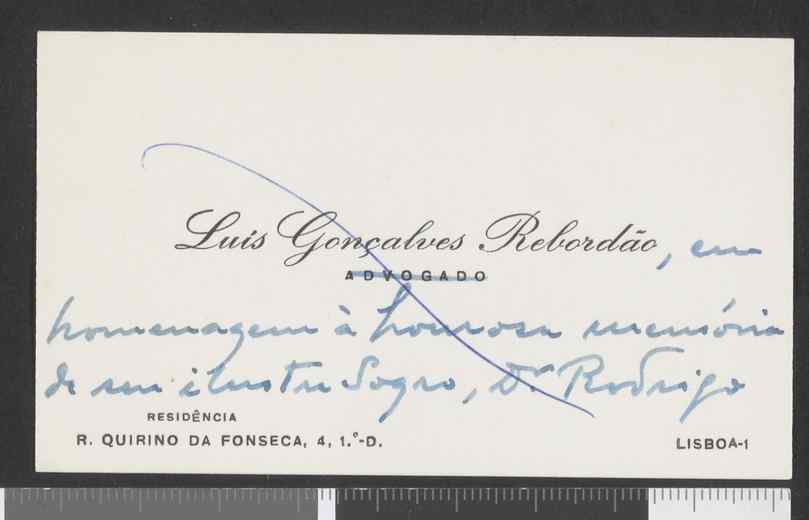 Luis Gonçalves Rebordão, em
ADVOGADO
homenagem à honrosa memória
de seu ilustre Sogro, Dr. Rodrigo
RESIDÊNCIA
R. QUIRINO DA FONSECA, 4, 1.º-D.
LISBOA-1